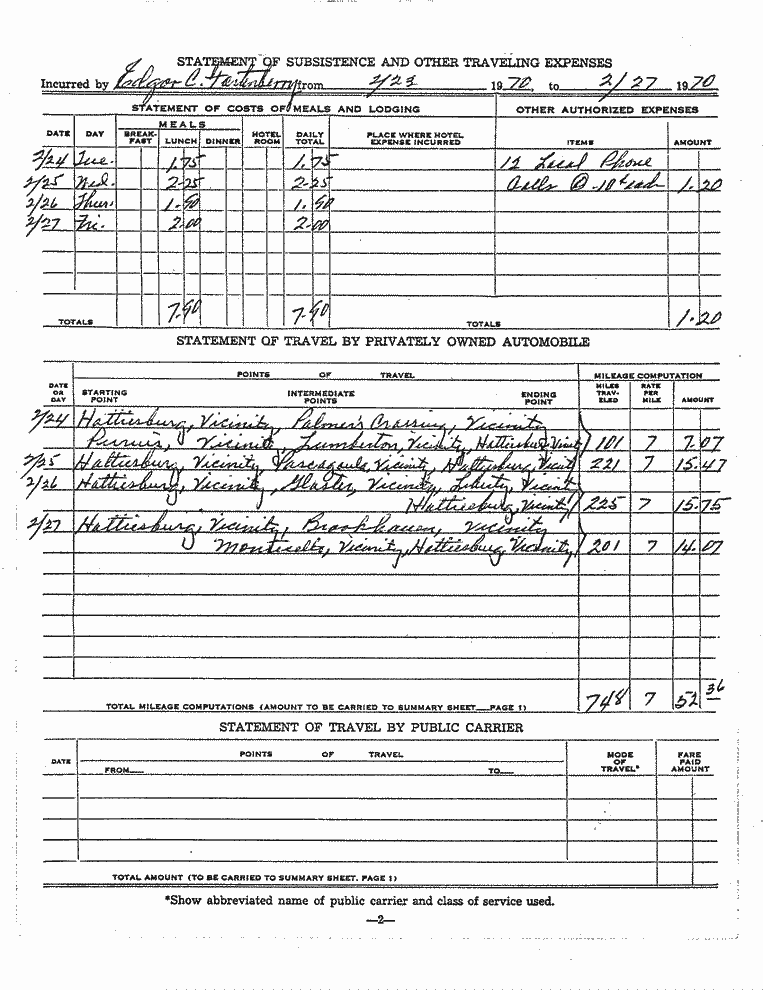 STATEMENT OF SUBSISTENCE AND OTHER TRAVELING EXPENSES
Incurred by Edgar C. Fortenberry from 2/23 1970, to 2/27 1970
STATEMENT OF COSTS OF MEALS AND LODGING OTHER AUTHORIZED EXPENSES
DATE DAY MEALS BREAK-FAST LUNCH DINNER HOTEL ROOM DAILY TOTAL PLACE WHERE HOTEL EXPENSE INCURRED ITEMS AMOUNT
2/24 Tue. 1.75 1.75 12 Local Phone
2/25 Wed. 2.25 2.25 Calls @ .10¢ each 1.20
2/26 Thur. 1.50 1.50
2/27 Fri. 2.00 2.00
TOTALS 7.50 7.50 TOTALS 1.20
STATEMENT OF TRAVEL BY PRIVATELY OWNED AUTOMOBILE
POINTS OF TRAVEL MILEAGE COMPUTATION
DATE OR DAY STARTING POINT INTERMEDIATE POINTS ENDING POINT MILES TRAV-ELED RATE PER MILE AMOUNT
2/24 Hattiesburg, Vicinity, Palmer's Crossing, Vicinity
Purvis, Vicinity, Lumberton, Vicinity, Hattiesburg, Vicinity 101 7 7.07
2/25 Hattiesburg, Vicinity, Pascagoula, Vicinity, Hattiesburg, Vicinity 221 7 15.47
2/26 Hattiesburg, Vicinity, Gloster, Vicinity, Liberty, Vicinity
Hattiesburg, Vicinity 225 7 15.75
2/27 Hattiesburg, Vicinity, Brookhaven, Vicinity
Monticello, Vicinity, Hattiesburg, Vicinity 201 7 14.07
TOTAL MILEAGE COMPUTATIONS (AMOUNT TO BE CARRIED TO SUMMARY SHEET—PAGE 1) 748 7 52.36
STATEMENT OF TRAVEL BY PUBLIC CARRIER
DATE POINTS OF TRAVEL MODE OF TRAVEL* FARE PAID AMOUNT
FROM— TO—
TOTAL AMOUNT (TO BE CARRIED TO SUMMARY SHEET, PAGE 1)
*Show abbreviated name of public carrier and class of service used.
—2—